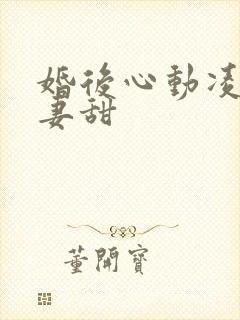 婚後心動凌
妻甜
董開寶